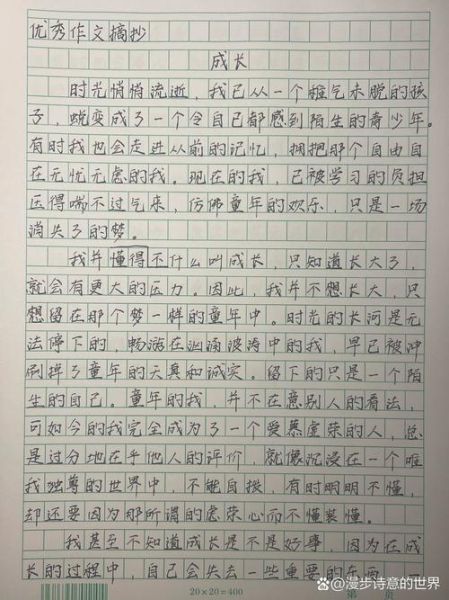 优秀作文摘抄
成长
时光悄悄流逝，我已从一个稚气未脱的孩
子，蜕变成了一个令自己都感到陌生的青少年。
有时我也会走进从前的记忆，拥抱那个自由自
在无忧无虑的我。现在的我，已被学习的负担
压得喘不过气来，仿佛童年的欢乐，只是一场
消失了的梦。
我并懂得不什么叫成长，只知道长大了，
就会有更大的压力。因此，我并不想长大，只
想留在那个梦一样的童年中。时光的长河是无
法停下的，畅游在汹涌波涛中的我，早已被冲
刷掉了童年的天真和诚实。留下的只是一个陌
生的自己。童年的我，并不在意别人的看法，
可如今的我完全成为了一个爱慕虚荣的人，总
是过分地在乎他人的评价，就像沉浸在一个唯
我独尊的世界中，不能自拔，有时明明不懂，
却还要因为那所谓的虚荣心而不懂装懂。
我甚至不知道成长是不是好事，因为在成
长的过程中，自己会失去一些重要的东西，一
20×20=400
@漫步诗意的世界